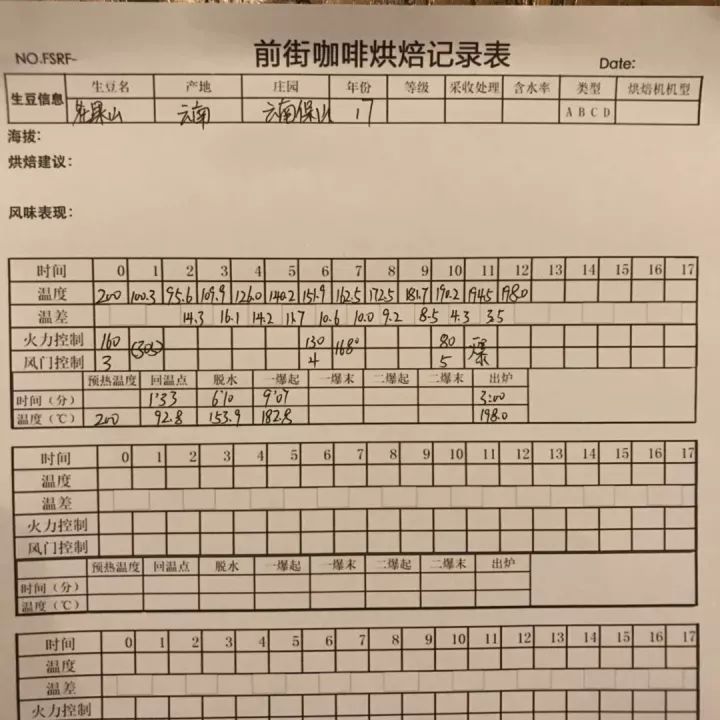 前街咖啡烘焙记录表
NO.FSRF- Date:
生豆信息 生豆名 产地 庄园 年份 等级 采收处理 含水率 类型 烘焙机机型
花果山 云南 云南保山 17 A B C D
海拔:
烘焙建议:
风味表现:
时间 0 1 2 3 4 5 6 7 8 9 10 11 12 13 14 15 16 17
温度 200 100.3 95.6 109.9 126.0 140.2 151.9 162.5 172.5 181.7 190.2 194.5 198.0
温差 14.3 16.1 14.2 11.7 10.6 10.0 9.2 8.5 4.3 3.5
火力控制 160 (30s) 130 168° 80 爆
风门控制 3 4 5
预热温度 回温点 脱水 一爆起 一爆末 二爆起 二爆末 出炉
时间(分) 1'33 6'10 9'07 3:00
温度(℃) 200 92.8 153.9 182.8 198.0
时间 0 1 2 3 4 5 6 7 8 9 10 11 12 13 14 15 16 17
温度
温差
火力控制
风门控制
预热温度 回温点 脱水 一爆起 一爆末 二爆起 二爆末 出炉
时间(分)
温度(℃)
时间 0 1 2 3 4 5 6 7 8 9 10 11 12 13 14 15 16 17
温度
温差
火力控制